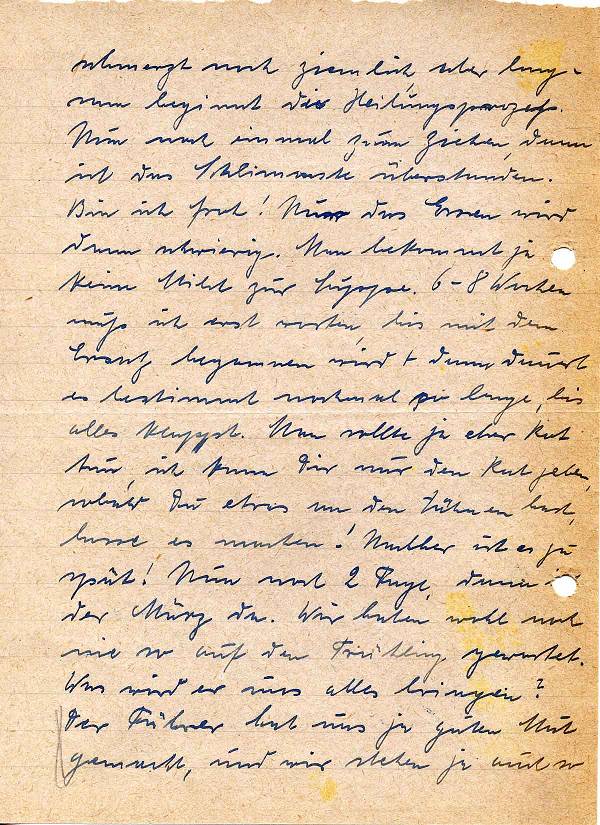 schmerzt noch ziemlich, aber lang-
sam beginnt der Heilungsprozeß.
Nun noch einmal zum Ziehen, dann
ist das Schlimmste überstanden.
Bin ich froh! Nur das Essen wird
dann schwierig. Man bekommt ja
keine Milch zur Suppe. 6-8 Wochen
muß ich erst warten, bis mit dem
Ersatz begonnen wird + dann dauert
es bestimmt nochmal so lange, bis
alles klappt. Man sollte ja eher Rat
tun, ich kann Dir nur den Rat geben,
sobald Du etwas an den Zähnen hast,
lasse es machen! Nachher ist es zu
spät! Nun noch 2 Tage, dann
der März da. Wir haben wohl noch
nie so auf den Frühling gewartet.
Was wird er uns alles bringen?
Der Führer hat uns ja guten Mut
gemacht, und wir stehen ja auch so